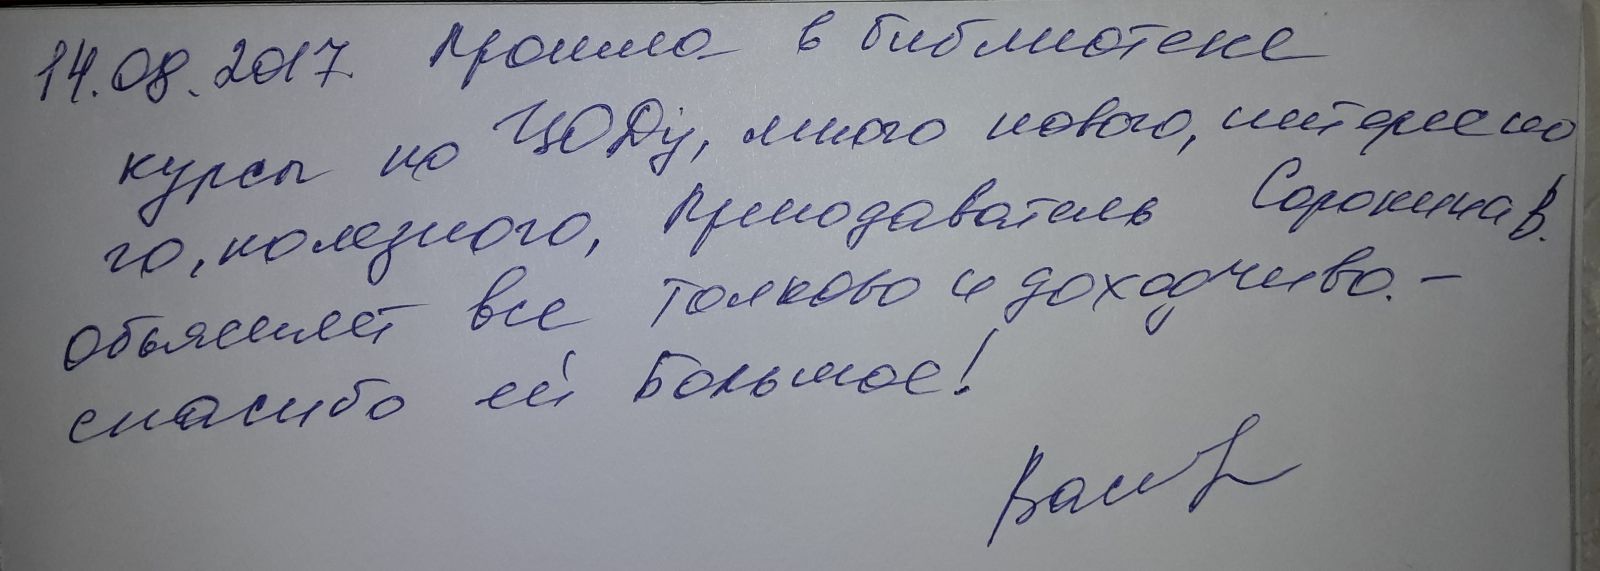 14.08.2017. Прошла в библиотеке
курсы по ЦОДу, много нового, интересно
го, полезного, Преподаватель Сорокина В.
объясняет все толково и доходчиво. –
спасибо ей Большое!